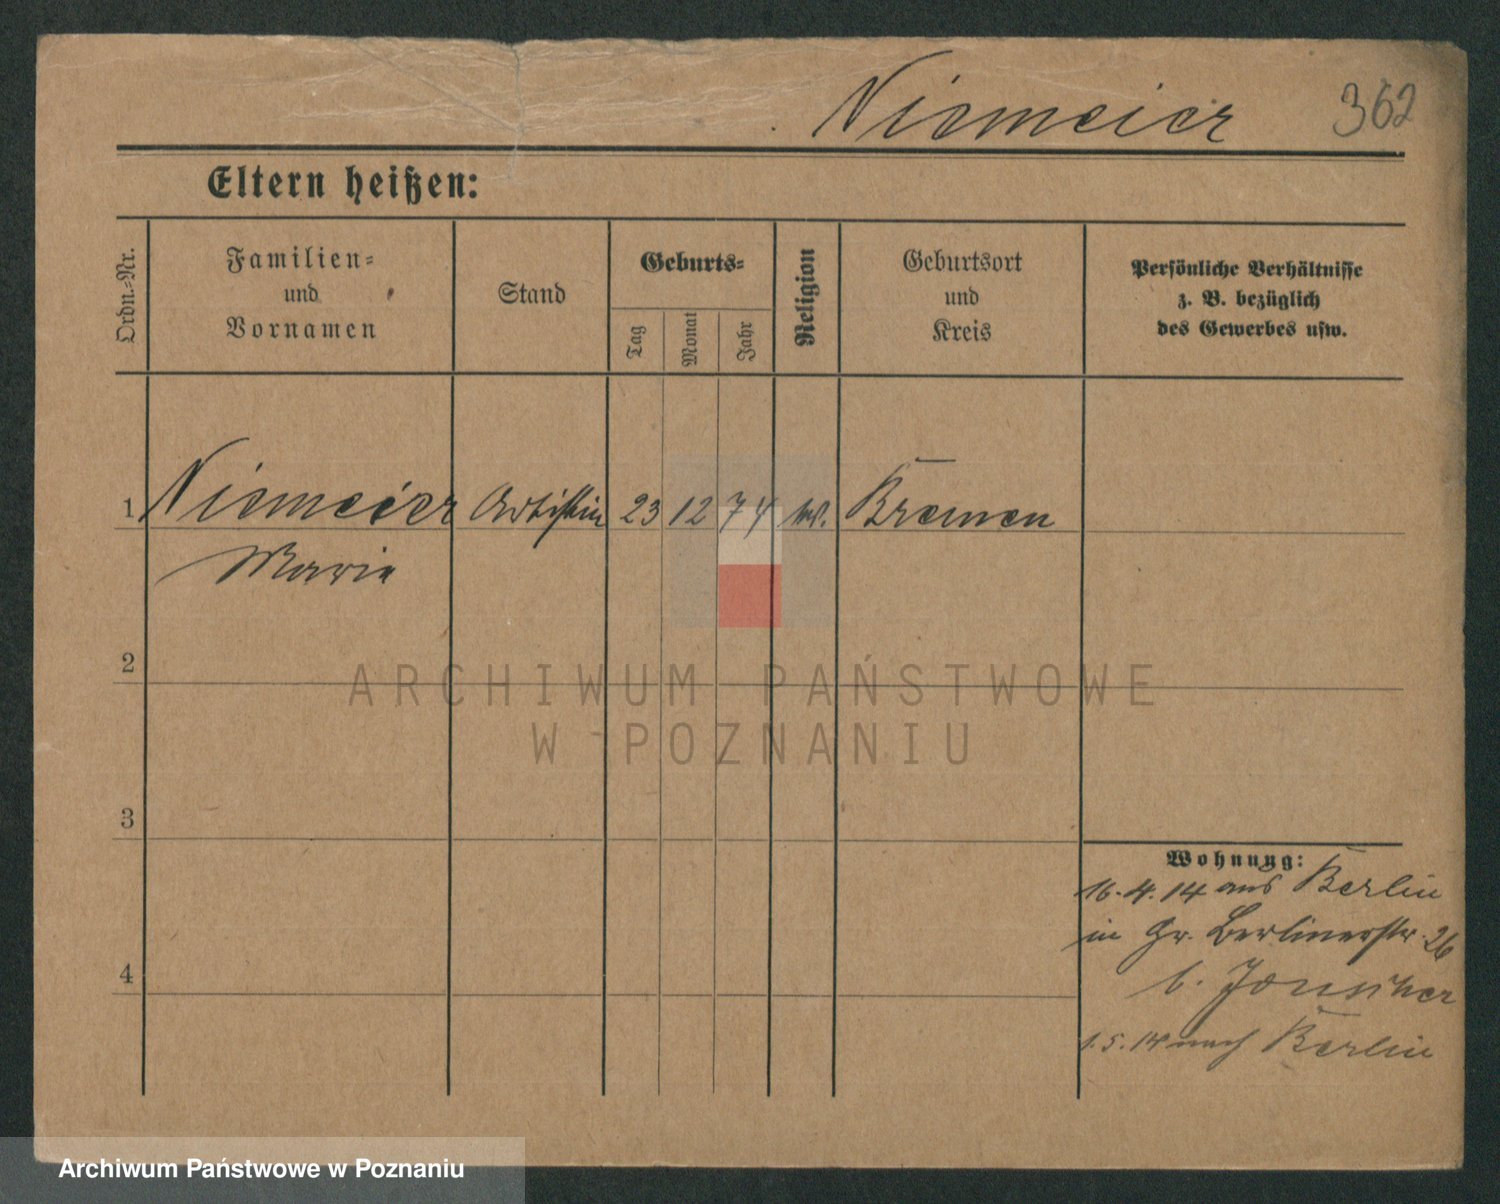 Niemeier 362
Eltern heißen:
Ordn.-Nr.
Familien-
und
Vornamen
Stand
Geburts-
Tag
Monat
Jahr
Religion
Geburtsort
und
Kreis
Persönliche Verhältnisse
z. B. bezüglich
des Gewerbes usw.
1 Niemeier Artistin 23 12 74 Bremen
Marie
2
3
4
Wohnung:
16. 4. 14 aus Berlin
in Gr. Berlinerstr. 26
b.
1. 5. 14 nach Berlin
ARCHIWUM PAŃSTWOWE
W POZNANIU
Archiwum Państwowe w Poznaniu